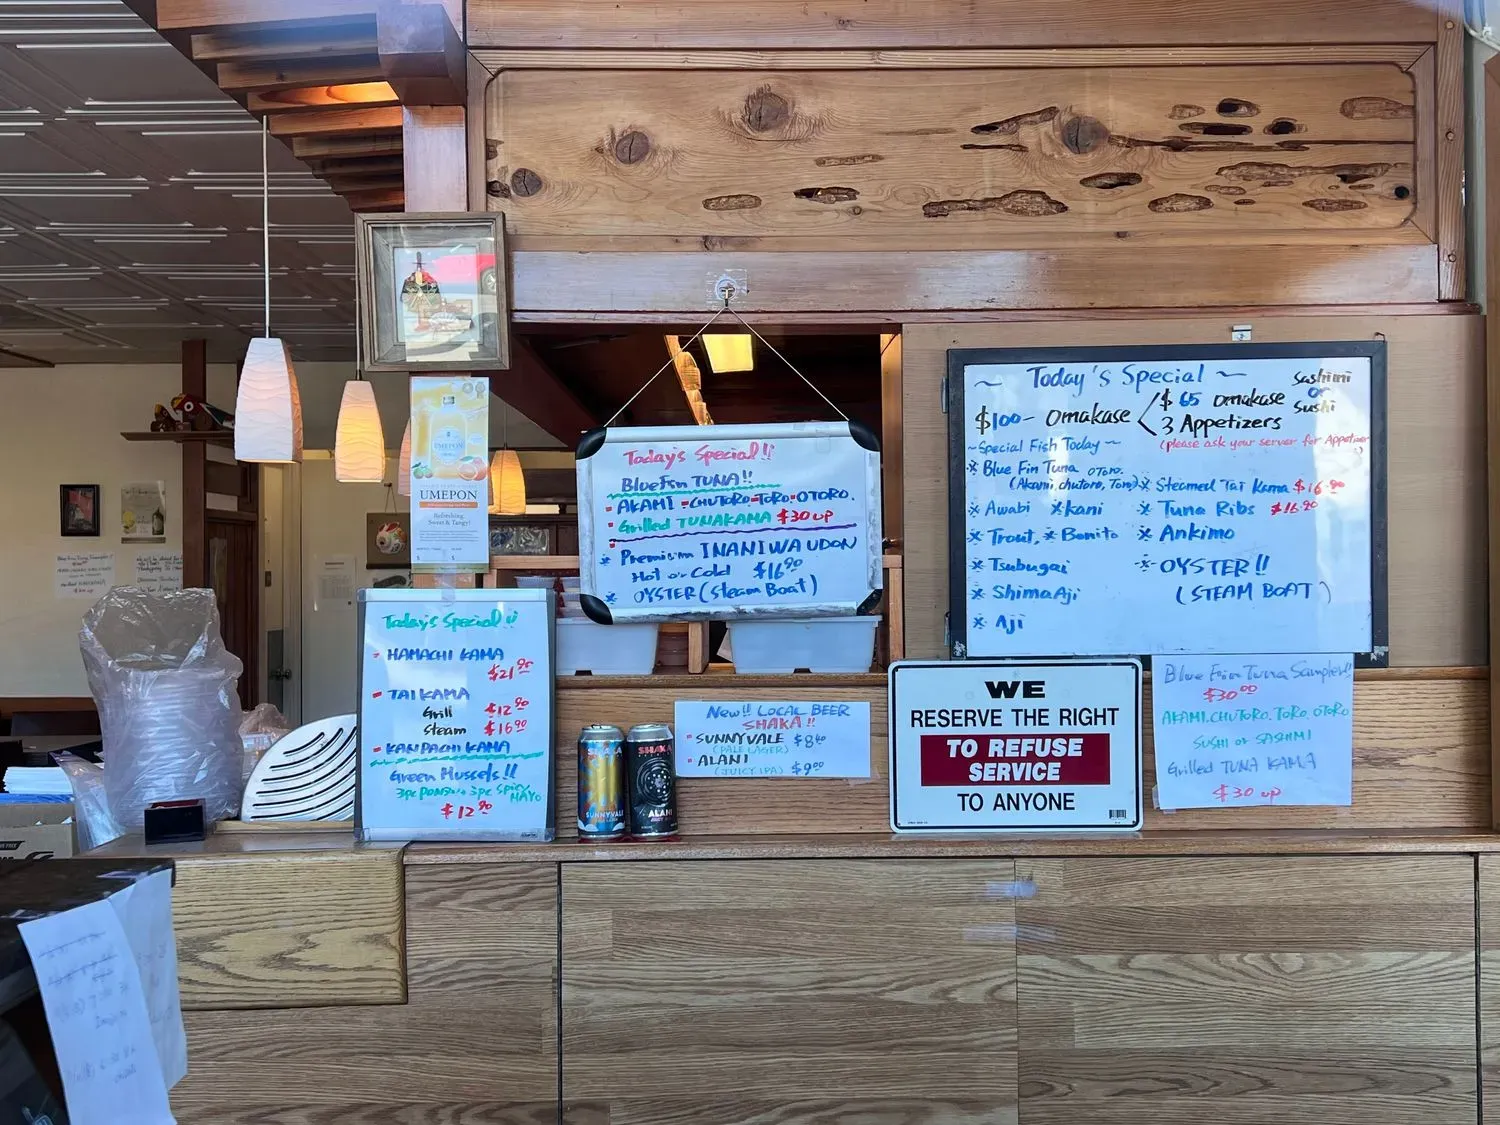 UMEPON
UMEPON
Refreshing,
Sweet & Tangy!
Today's Special!!
HAMACHI KAMA
$21.95
TAI KAMA
Grill $12.90
Steam $16.90
KANPACHI KAMA
Green Mussels!!
3pc PONZU or 3pc Spicy
MAYO
$12.90
Today's Special!!
BlueFin TUNA!!
AKAMI-CHUTORO-TORO-OTORO.
Grilled TUNAKAMA $30 up
Premisim INANIWA UDON
Hot or Cold $16.90
OYSTER (Steam Boat)
New!! LOCAL BEER
SHAKA!!
SUNNYVALE $8.40
(PALE LAGER)
ALANI
(JUICY IPA) $9.00
SUNNYVALE
SHAKA
ALANI
~ Today's Special ~
Sashimi
or
Sushi
$100- Omakase < $65 Omakase
3 Appetizers
~Special Fish Today~
(please ask your server for Appetizer
Blue Fin Tuna OTORO.
(Akami, chutoro, Toro)
Awabi Kani
Trout, Bonito
Tsubugai
Shima Aji
Aji
Steamed Tai Kama $16.90
Tuna Ribs $16.90
Ankimo
OYSTER!!
(STEAM BOAT)
WE
RESERVE THE RIGHT
TO REFUSE
SERVICE
TO ANYONE
Blue Fin Tuna Sampler!!
$30.00
AKAMI.CHUTORO.TORO.OTORO
SUSHI or SASHIMI
Grilled TUNA KAMA
$30 up